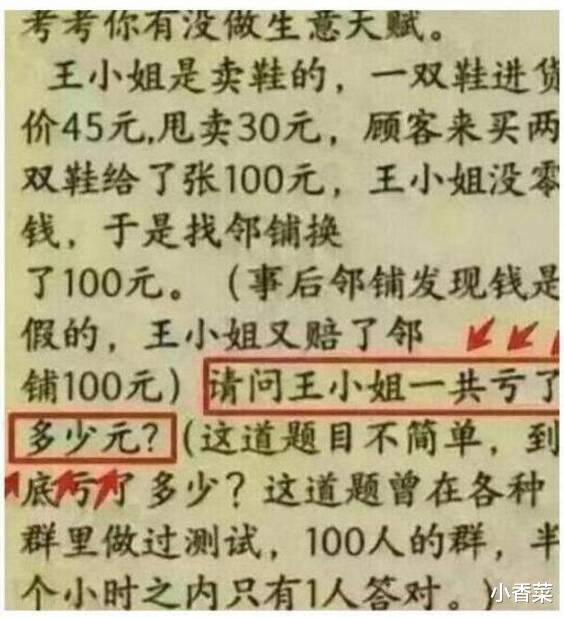 考考你有没做生意天赋。
王小姐是卖鞋的，一双鞋进货
价45元,甩卖30元，顾客来买两
双鞋给了张100元，王小姐没零
钱，于是找邻铺换
了100元。（事后邻铺发现钱是
假的，王小姐又赔了邻
铺100元）请问王小姐一共亏了
多少元?（这道题目不简单，到
底亏了多少？这道题曾在各种
群里做过测试，100人的群，半
个小时之内只有1人答对。）
小香菜